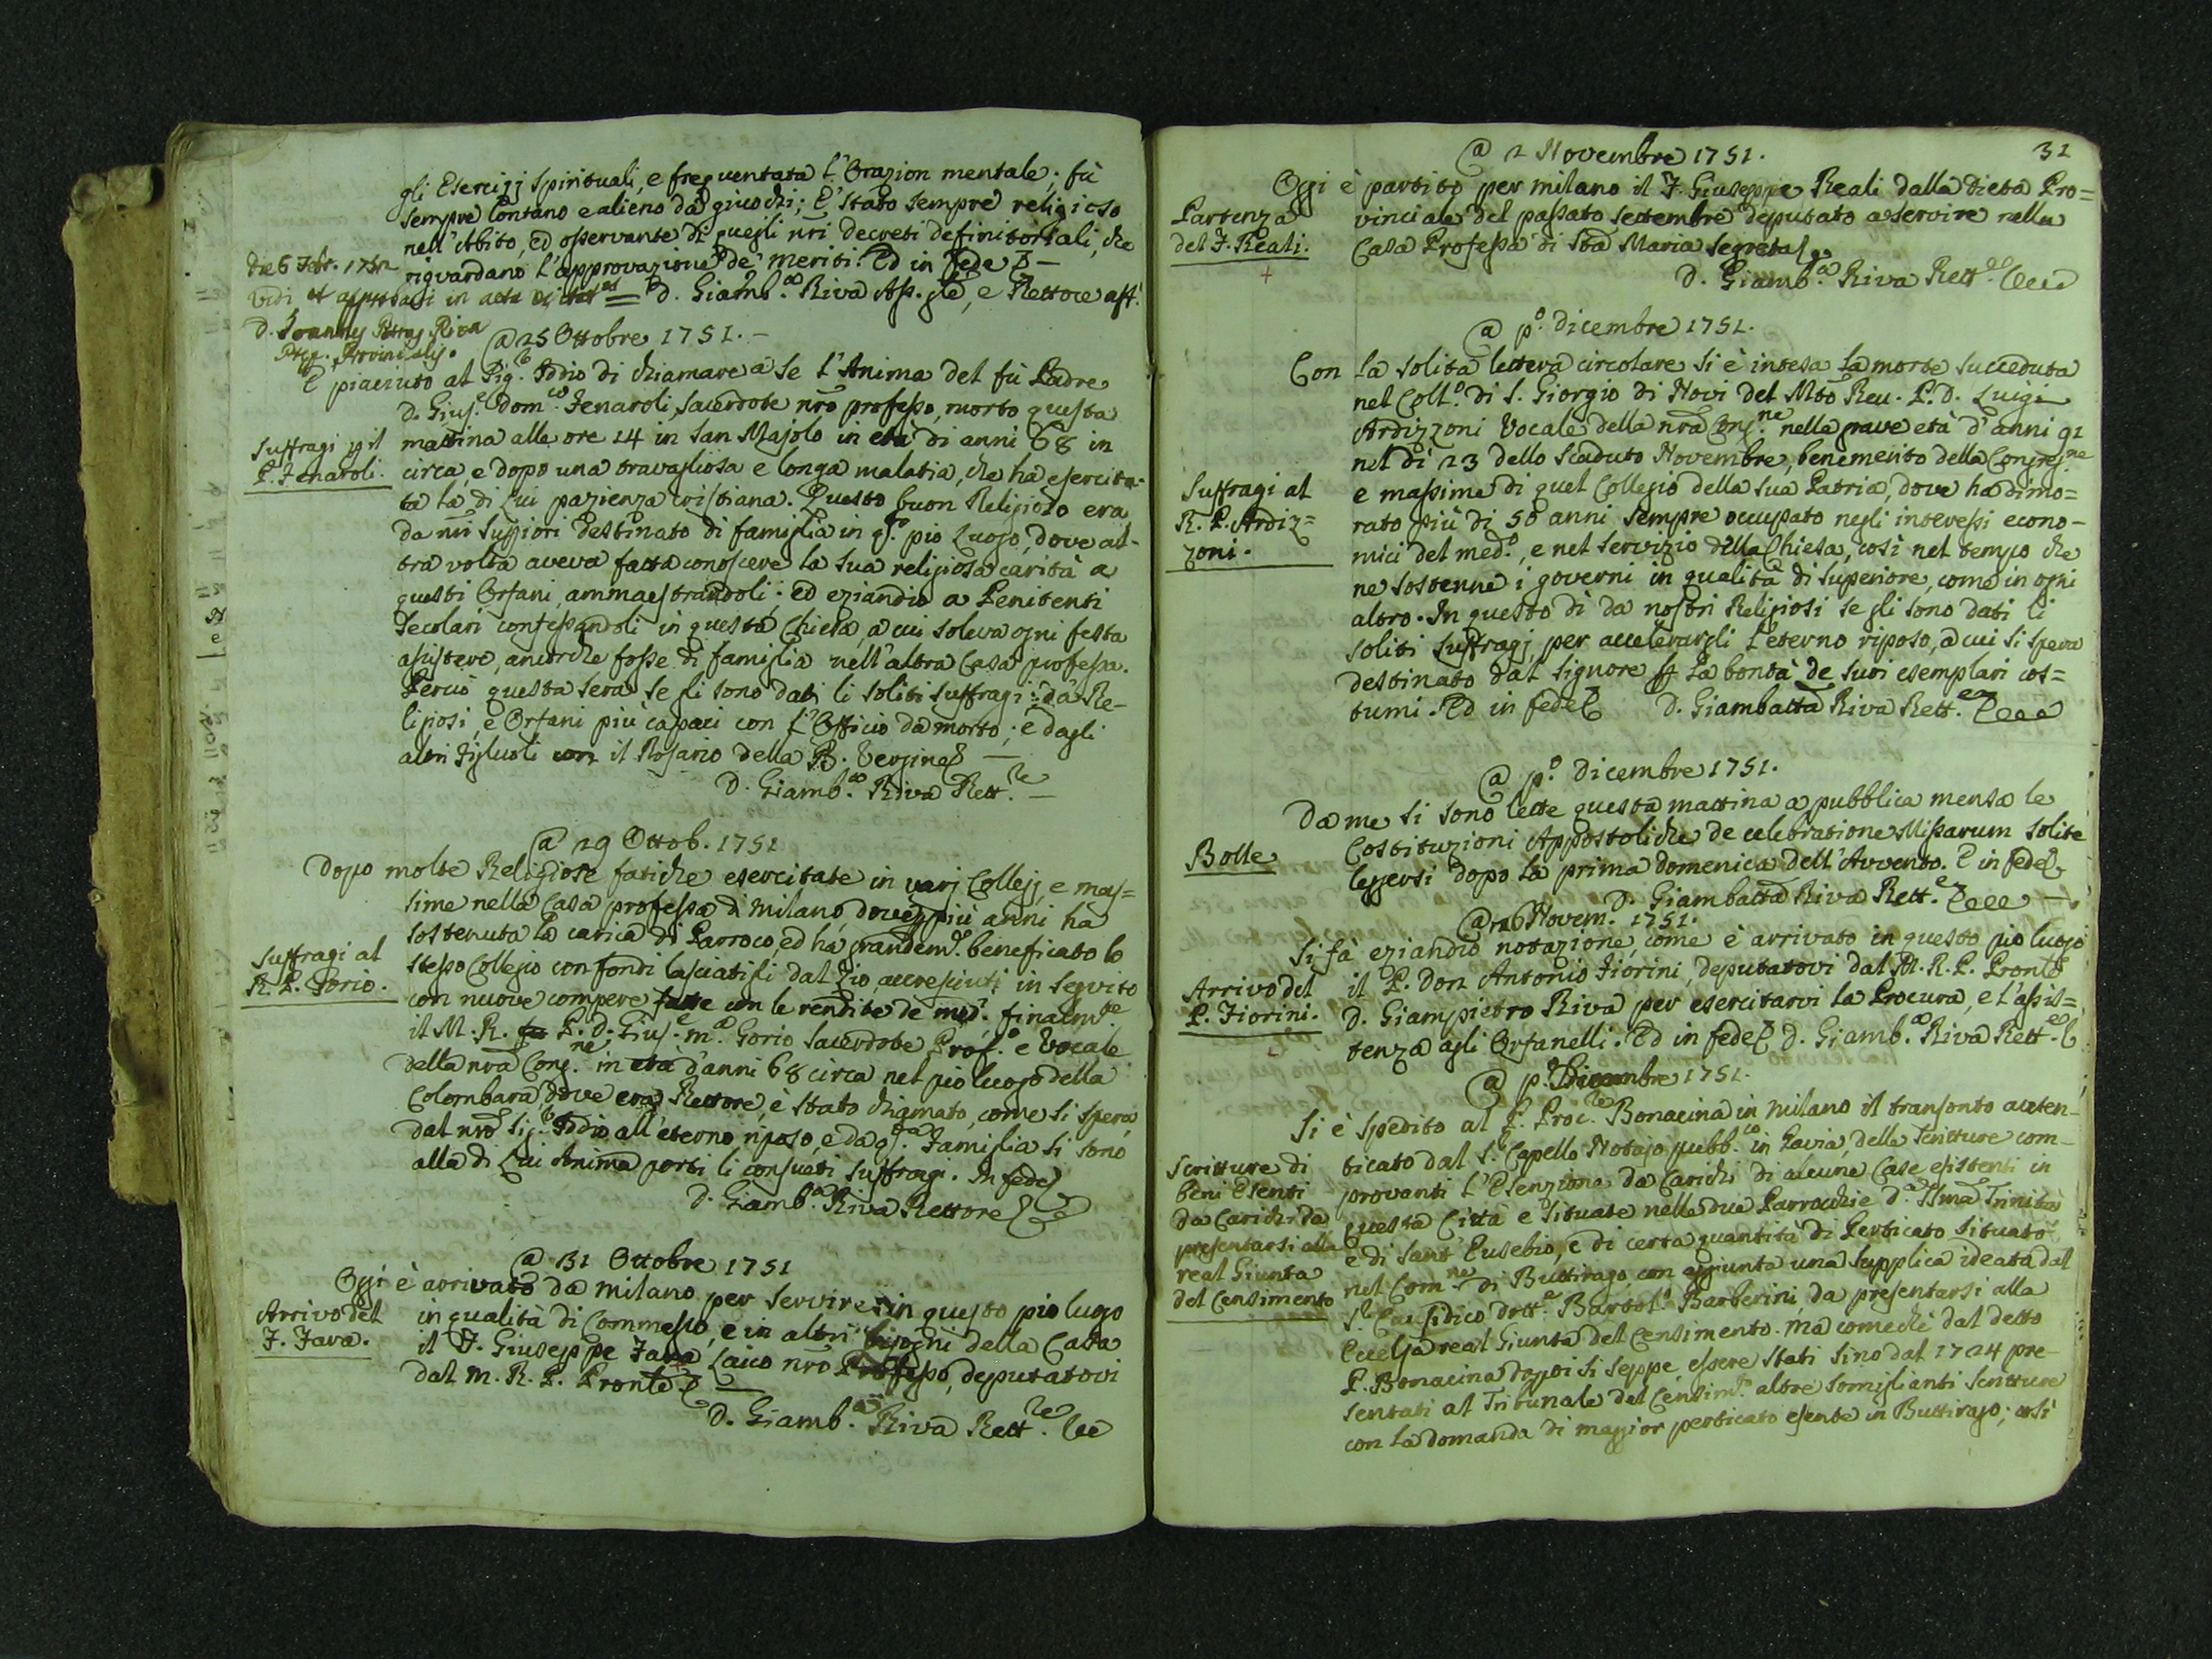 gli Esercizj spirituali, e frequentata l'Orazion mentale; fù
sempre lontano e alieno da giuochi; E' stato sempre religioso
nell'Abito, ed osservante di quegli nri decreti definitoriali, che
riguardano l'approvazione de' meriti. Ed in fede
D. Giamb.a Riva Ass. gle, e Rettore att.
Die 6 Febr. 1752
vidi et approbavi in actu visitat
D. Joannes Petrus Riva
Prep. Provincialis.
@ 25 Ottobre 1751. —
E' piaciuto al Sig.e Iddio di chiamare a se l'Anima del fù Padre
D. Gius.e Dom.co Fenaroli, sacerdote nro professo, morto questa
mattina alle ore 14 in San Majolo in età di anni 68 in
circa, e dopo una travagliosa e longa malatia, che ha esercita-
ta la di Lui pazienza cristiana. Questo buon Religioso era
da nri Supiori destinato di famiglia in q.to pio Luogo, dove al-
tra volta aveva fatta conoscere la sua religiosa carità a
questi Orfani, ammaestrandoli; ed eziandio a Penitenti
Secolari confessandoli in questa Chiesa, a cui soleva ogni festa
assistere, ancorche fosse di famiglia nell'altra Casa professa.
Perciò questa sera se gli sono dati li soliti suffragi: da Re-
ligiosi, e Orfani più capaci con l'Officio da morto; e dagli
altri Figluoli con il Rosario della B. Vergine
D. Giamb.a Riva Rett.re —
Suffragi p il
P. Fenaroli.
@ 29 Ottob. 1751
Dopo molte Religiose fatiche esercitate in varj Collegj, e mas=
sime nella Casa professa di Milano, dove p più anni hà
sostenuta la carica di Parroco, ed hà grandem.e beneficato lo
stesso Collegio con fondi lasciatigli dal Zio, accresciuti in seguito
con nuove compere fatte con le rendite de med.i, finalm.te
il M. R. P. D. Gius.e m.a Gorio Sacerdote Prof.o e Vocale
della nra Cong.ne in età d'anni 68 circa nel pio luogo della
Colombara, dove era Rettore, è stato chiamato, come si spera,
dal nro Sig.e Iddio all'eterno riposo, e da q.sta Famiglia si sono
alla di Lui Anima porti li consueti suffragi. In fede
D. Giamb.a Riva Rettore
Suffragi al
R. P. Gorio.
@ 31 Ottobre 1751
Oggi è arrivato da Milano per servire in questo pio lugo
in qualità di Commesso, e in altri bisogni della Casa
il F. Giuseppe Fava Laico nro Professo, deputatovi
dal M. R. P. Pronle
D. Giamb.a Riva Rett.re
Arrivo del
F. Fava.
32
@ 2 Novembre 1751.
Oggi è partito per milano il F. Giuseppe Reali dalla dieta Pro=
vinciale del passato settembre deputato a servire nella
Casa Professa di Sta Maria Segreta
D. Giamb.a Riva Rett.re
Partenza
del F. Reali.
@ p.o dicembre 1751.
Con la solita lettera circolare si è intesa la morte succeduta
nel Coll.o di S. Giorgio di Novi del Mto Reu. P. D. Luigi
Ardizzoni Vocale della nra Cong.ne nella grave età d'anni 91
nel dì 23 dello scaduto Novembre, benemerito della Congreg.ne
e massime di quel Collegio della sua Patria, dove ha dimo=
rato più di 50 anni sempre occupato negli interessi econo-
mici del med.o, e nel servizio della Chiesa, così nel tempo che
ne sostenne i governi in qualità di Superiore, come in ogni
altro. In questo dì da nostri Religiosi se gli sono dati li
soliti suffragj per accelerargli l'eterno riposo, a cui si spera
destinato dal Signore p la bontà de suoi esemplari cos=
tumi. Ed in fede D. Giambatta Riva Rett.re
Suffragi al
R. P. Ardiz=
zoni.
@ p.o Dicembre 1751.
Da me si sono lette questa mattina a pubblica mensa le
Costituzioni Appostoliche de celebratione Missarum solite
leggersi dopo la prima domenica dell'Avvento. E in fede
D. Giambatta Riva Rett.e
Bolle
@ 26 Novem. 1751.
Si fà eziandio notazione, come è arrivato in questo pio luogo
il P. Don Antonio Fiorini, deputatovi dal M. R. P. Pronle
D. Giampietro Riva per esercitarvi la Procura, e l'assis=
tenza agli Orfanelli. Ed in fede D. Giamb.a Riva Rett.re
Arrivo del
P. Fiorini.
@ p.o Dicembre 1751.
Si è spedito al P. Proc.le Bonacina in Milano il transonto auten-
ticato dal S.r Capello Notajo pubb.co in Pavia, delle scritture com-
provanti l'Esenzione da Carichi di alcune Case esistenti in
questa Città e situate nelle due Parrochie d.a SSma Trinità
e di Sant'Eusebio, e di certa quantità di Perticato situato
nel Com.ne di Buttirago, con aggiunta una supplica ideata dal
S.r Causidico dott.e Bartol.o Barberini, da presentarsi alla
Eccelsa real Giunta del Censimento. Ma comechè dal detto
P. Bonacina doppoi si seppe, essere stati sino dal 1724 pre-
sentati al Tribunale del Censim.to altre somiglianti scritture
con la domanda di maggior perticato esente in Buttirago; così
Scritture di
beni Esenti
da Carichi da
presentarsi alla
real Giunta
del Censimento